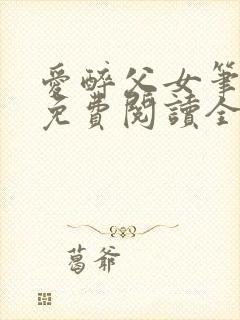 愛醉父女筆
免費閱讀全
葛爺